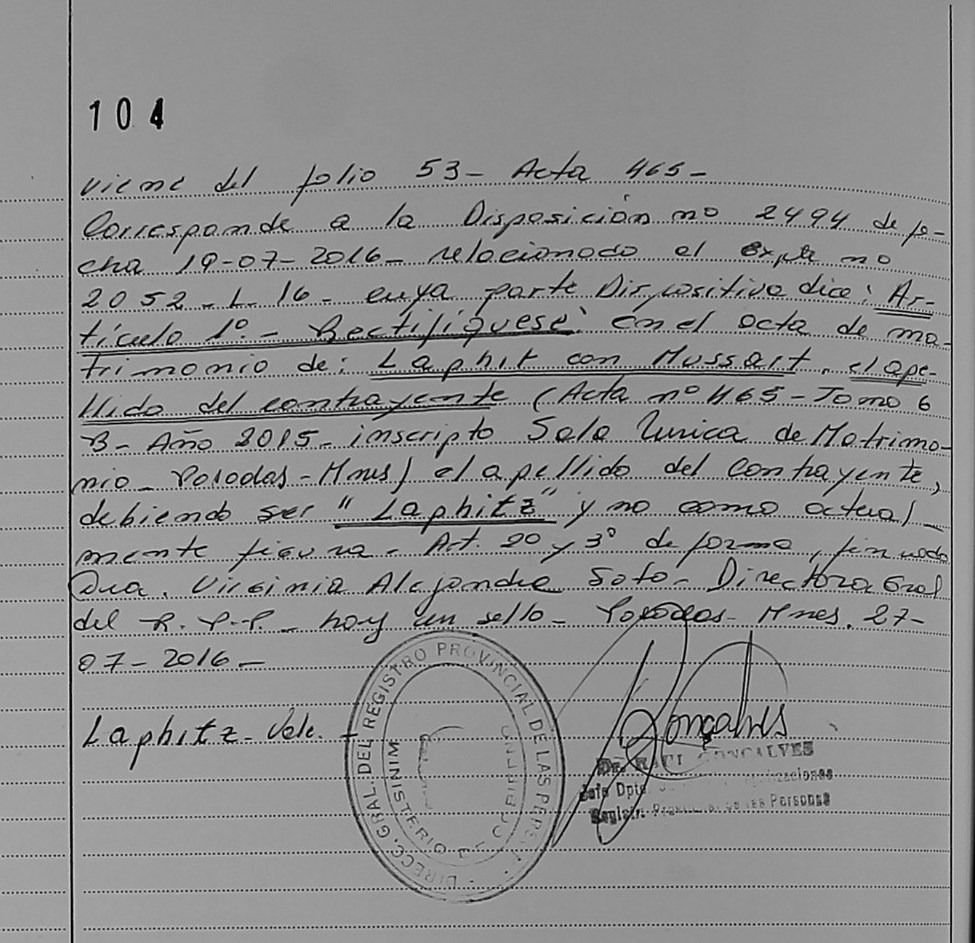 104
viene del folio 53- Acta 465-
Corresponde a la Disposición no 2494 de fe-
cha 19-07-2016- relacionado el expte no
2052-L-16- cuya parte Dispositiva dice: Ar-
tículo 1º- Rectifíquese: en el acta de ma-
trimonio de: Laphit con Mussart, el ape-
llido del contrayente (Acta nº 465-Tomo 6
B- Año 2015- inscripto Sala Unica de Matrimo-
nio- Posadas-Mnes) el apellido del contrayente,
debiendo ser "Laphitz" y no como actual-
mente figura. Art. 2º y 3º de forma, firmado
Dra. Virginia Alejandra Soto- Directora Gral
del R.P.P- hay un sello- Posadas- Mnes. 27-
07-2016-
Laphitz- Vale. -
DIRECC. GRAL. DEL REGISTRO PROVINCIAL DE LAS
MINISTERIO DE GOBIERNO
Goncalves
Dr. RAUL GONCALVES
Jefe Dpto.
Registro Provincial de las Personas